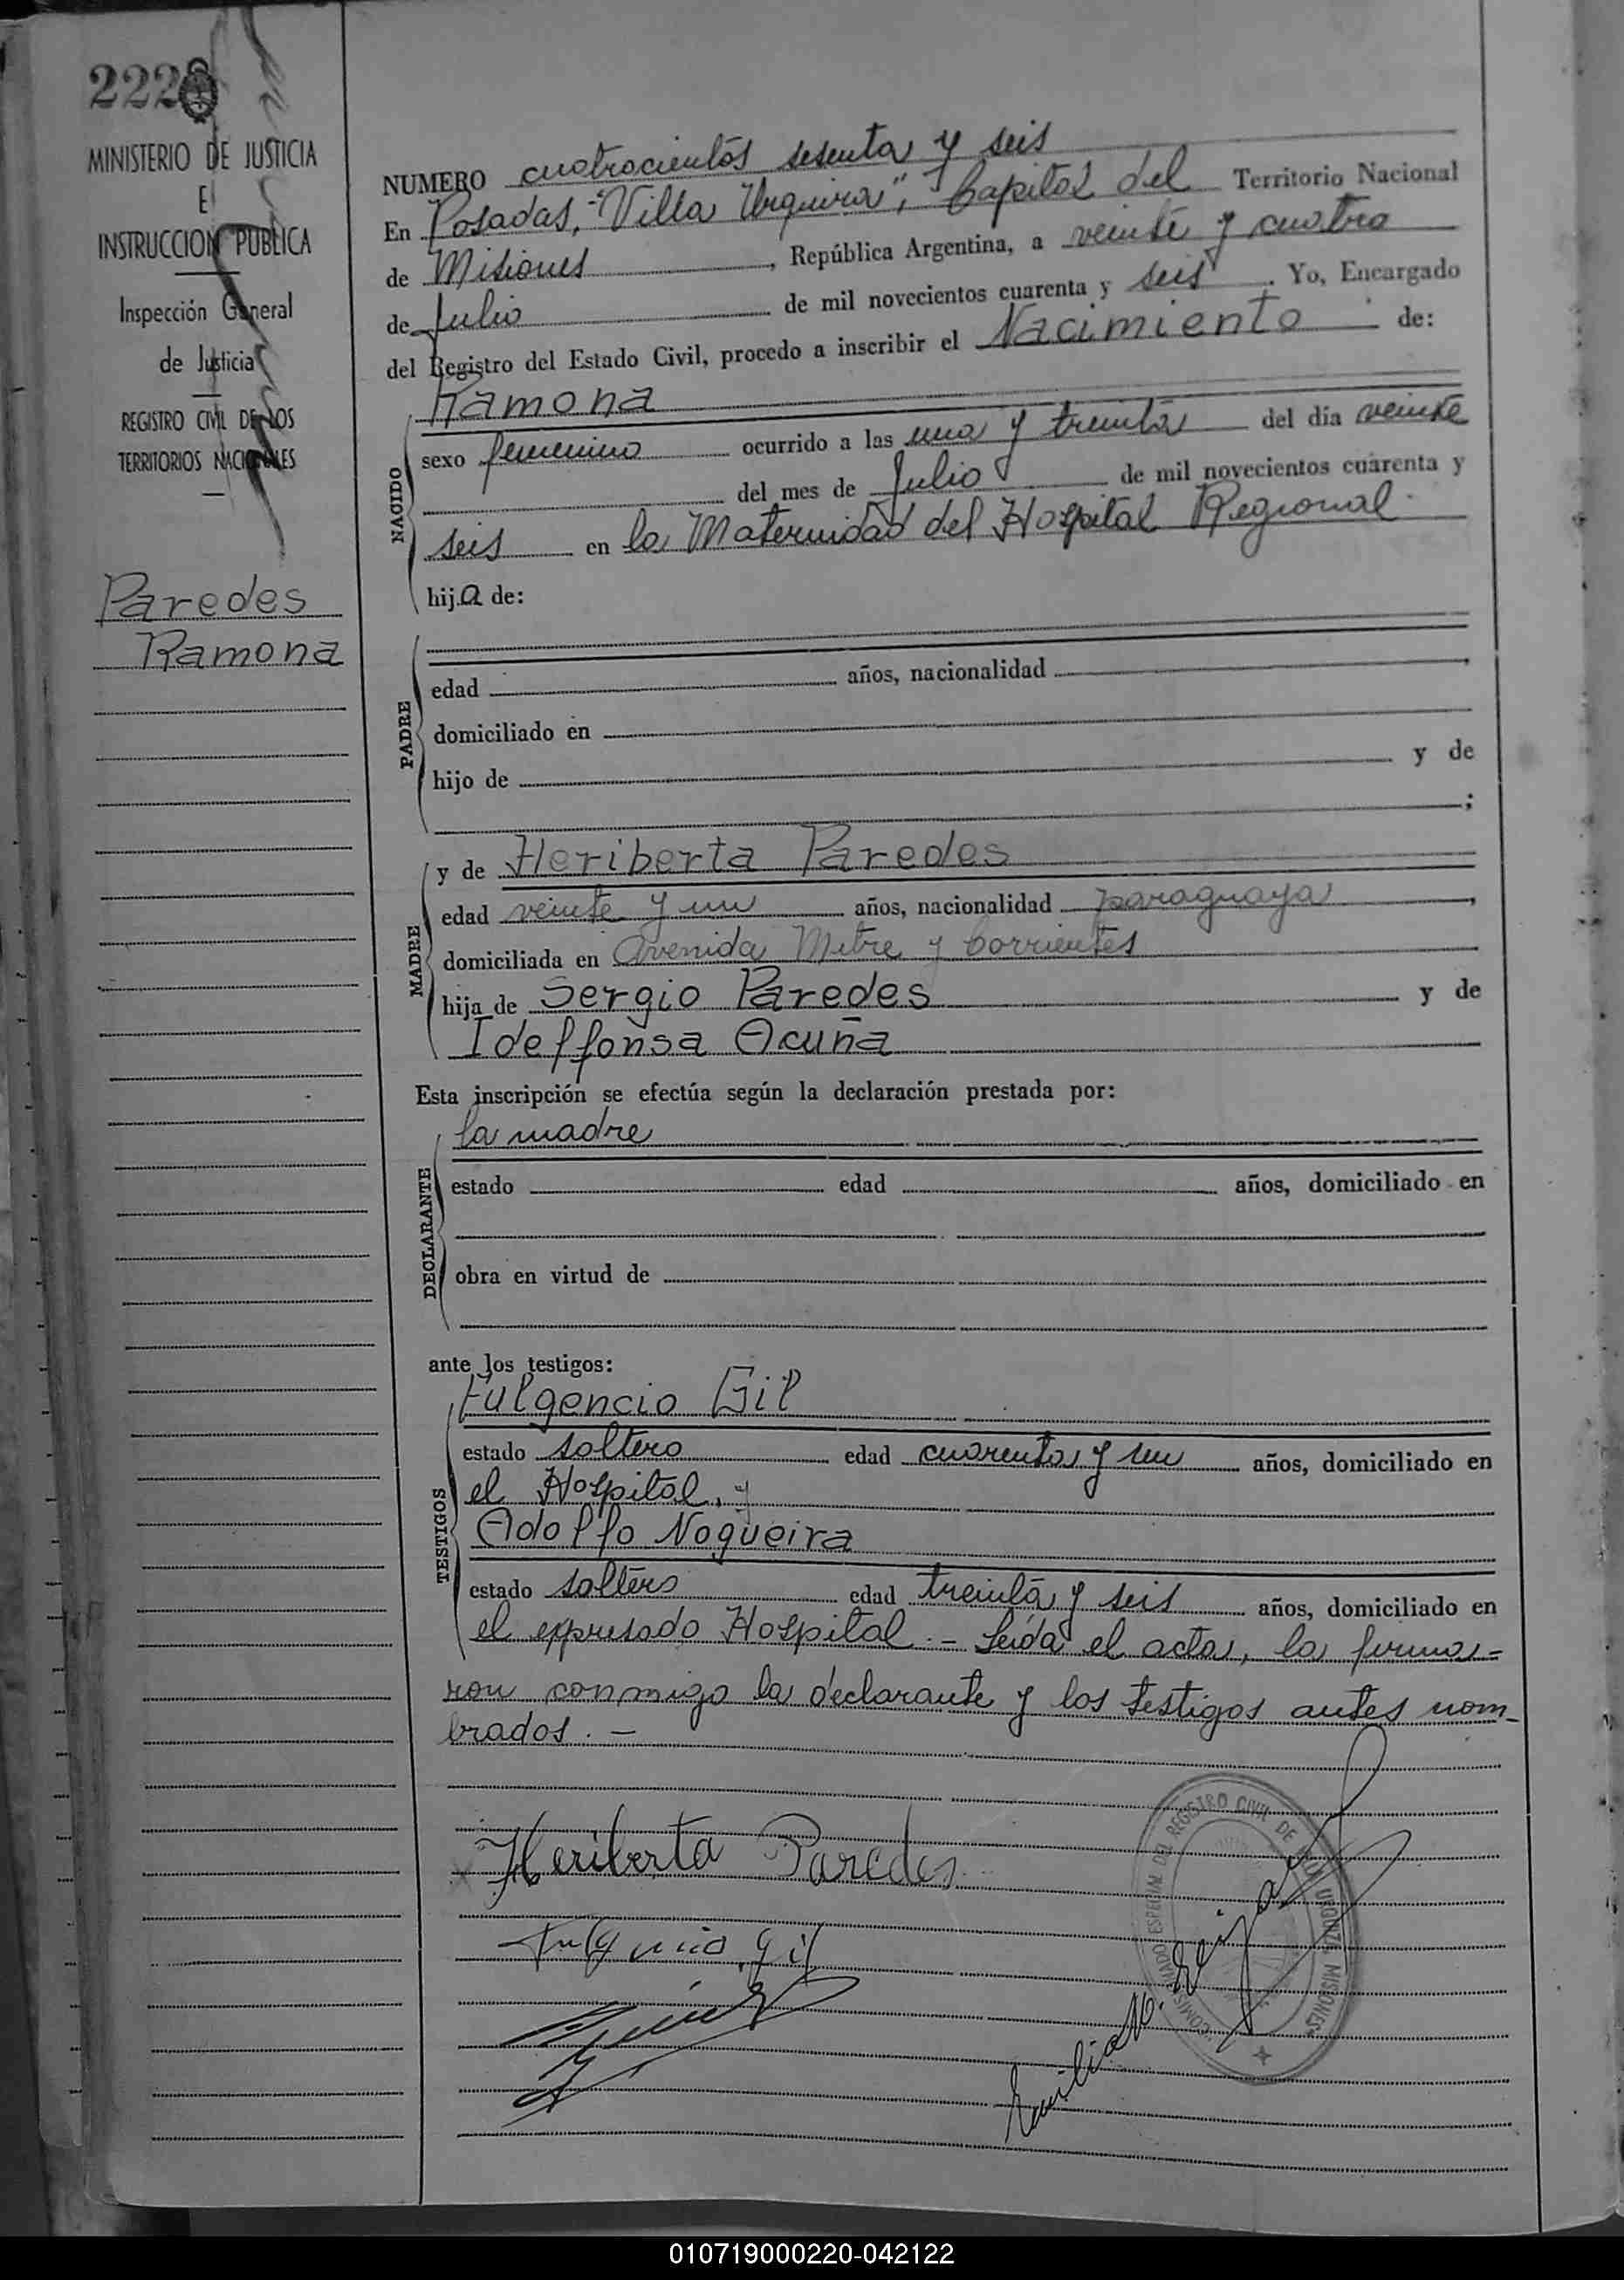 222
MINISTERIO DE JUSTICIA
E
INSTRUCCION PUBLICA
Inspección General
de Justicia
REGISTRO CIVIL DE LOS
TERRITORIOS NACIONALES
Paredes
Ramona
NUMERO cuatrocientos sesenta y seis
En Posadas, "Villa Urquiza", Capital del Territorio Nacional
de Misiones, República Argentina, a veinte y cuatro
de Julio de mil novecientos cuarenta y seis. Yo, Encargado
del Registro del Estado Civil, procedo a inscribir el Nacimiento de:
NACIDO
Ramona
sexo femenino ocurrido a las una y treinta del día veinte
del mes de Julio de mil novecientos cuarenta y
seis en la Maternidad del Hospital Regional.
hija de:
PADRE
edad años, nacionalidad ,
domiciliado en
hijo de y de
;
MADRE
y de Heriberta Paredes
edad veinte y un años, nacionalidad paraguaya,
domiciliada en Avenida Mitre y Corrientes
hija de Sergio Paredes y de
Ideffonsa Acuña
Esta inscripción se efectúa según la declaración prestada por:
DECLARANTE
la madre
estado edad años, domiciliado en
obra en virtud de
ante los testigos:
TESTIGOS
Fulgencio Gil
estado soltero edad cuarenta y un años, domiciliado en
el Hospital, y
Adolfo Nogueira
estado soltero edad treinta y seis años, domiciliado en
el expresado Hospital.- Leída el acta, la firma=
ron conmigo la declarante y los testigos antes nom-
brados.-
Heriberta Paredes
Fulgencio Gil
COMISIONADO ESPECIAL DEL REGISTRO CIVIL DE VILLA URQUIZA MISIONES
010719000220-042122